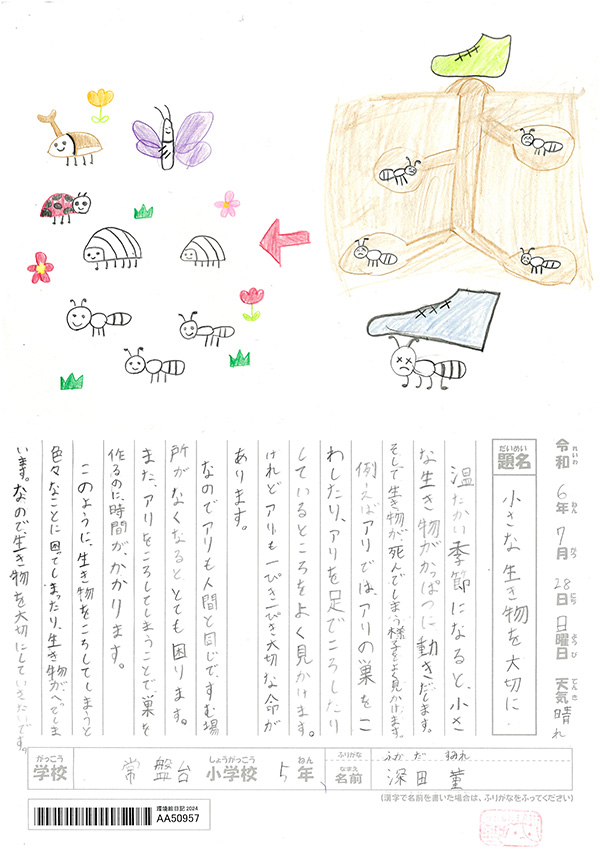 令和6年7月28日日曜日 天気晴れ
れいわ ねん がつ にち ようび てんき
だいめい
題名 小さな生き物を大切に
温たかい季節になると、小さ
な生き物がかっぱつに動きだします。
そして生き物が、死んでしまう様子をよく見かけます。
例えばアリでは、アリの巣をこ
わしたり、アリを足でころしたり
しているところをよく見かけます。
けれどアリも一ぴき一ぴき大切な命が
あります。
なのでアリも人間と同じで、すむ場
所がなくなるととても困ります。
また、アリをころしてしまうことで巣を
作るのに、時間が、かかります。
このように、生き物をころしてしまうと
色々なことに困ってしまったり、生き物がへってしま
います。なので生き物を大切にしていきたいです。
がっこう しょうがっこう ねん ふりがな ふかだ すみれ
学校 常盤台小学校 5年 なまえ 名前 深田菫
(漢字で名前を書いた場合は、ふりがなをふってください)
環境絵日記2024
AA50957